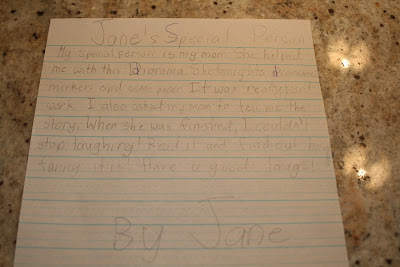 Jane's Special Person
My special person is my mom. She helped
me with this Diorama. She
markers and some paper. It was really
work. I also asked my mom to tell me the
story. When she was finished, I couldn't
stop laughing! Read it and find out how
funny it is! Have a good laugh!
By Jane